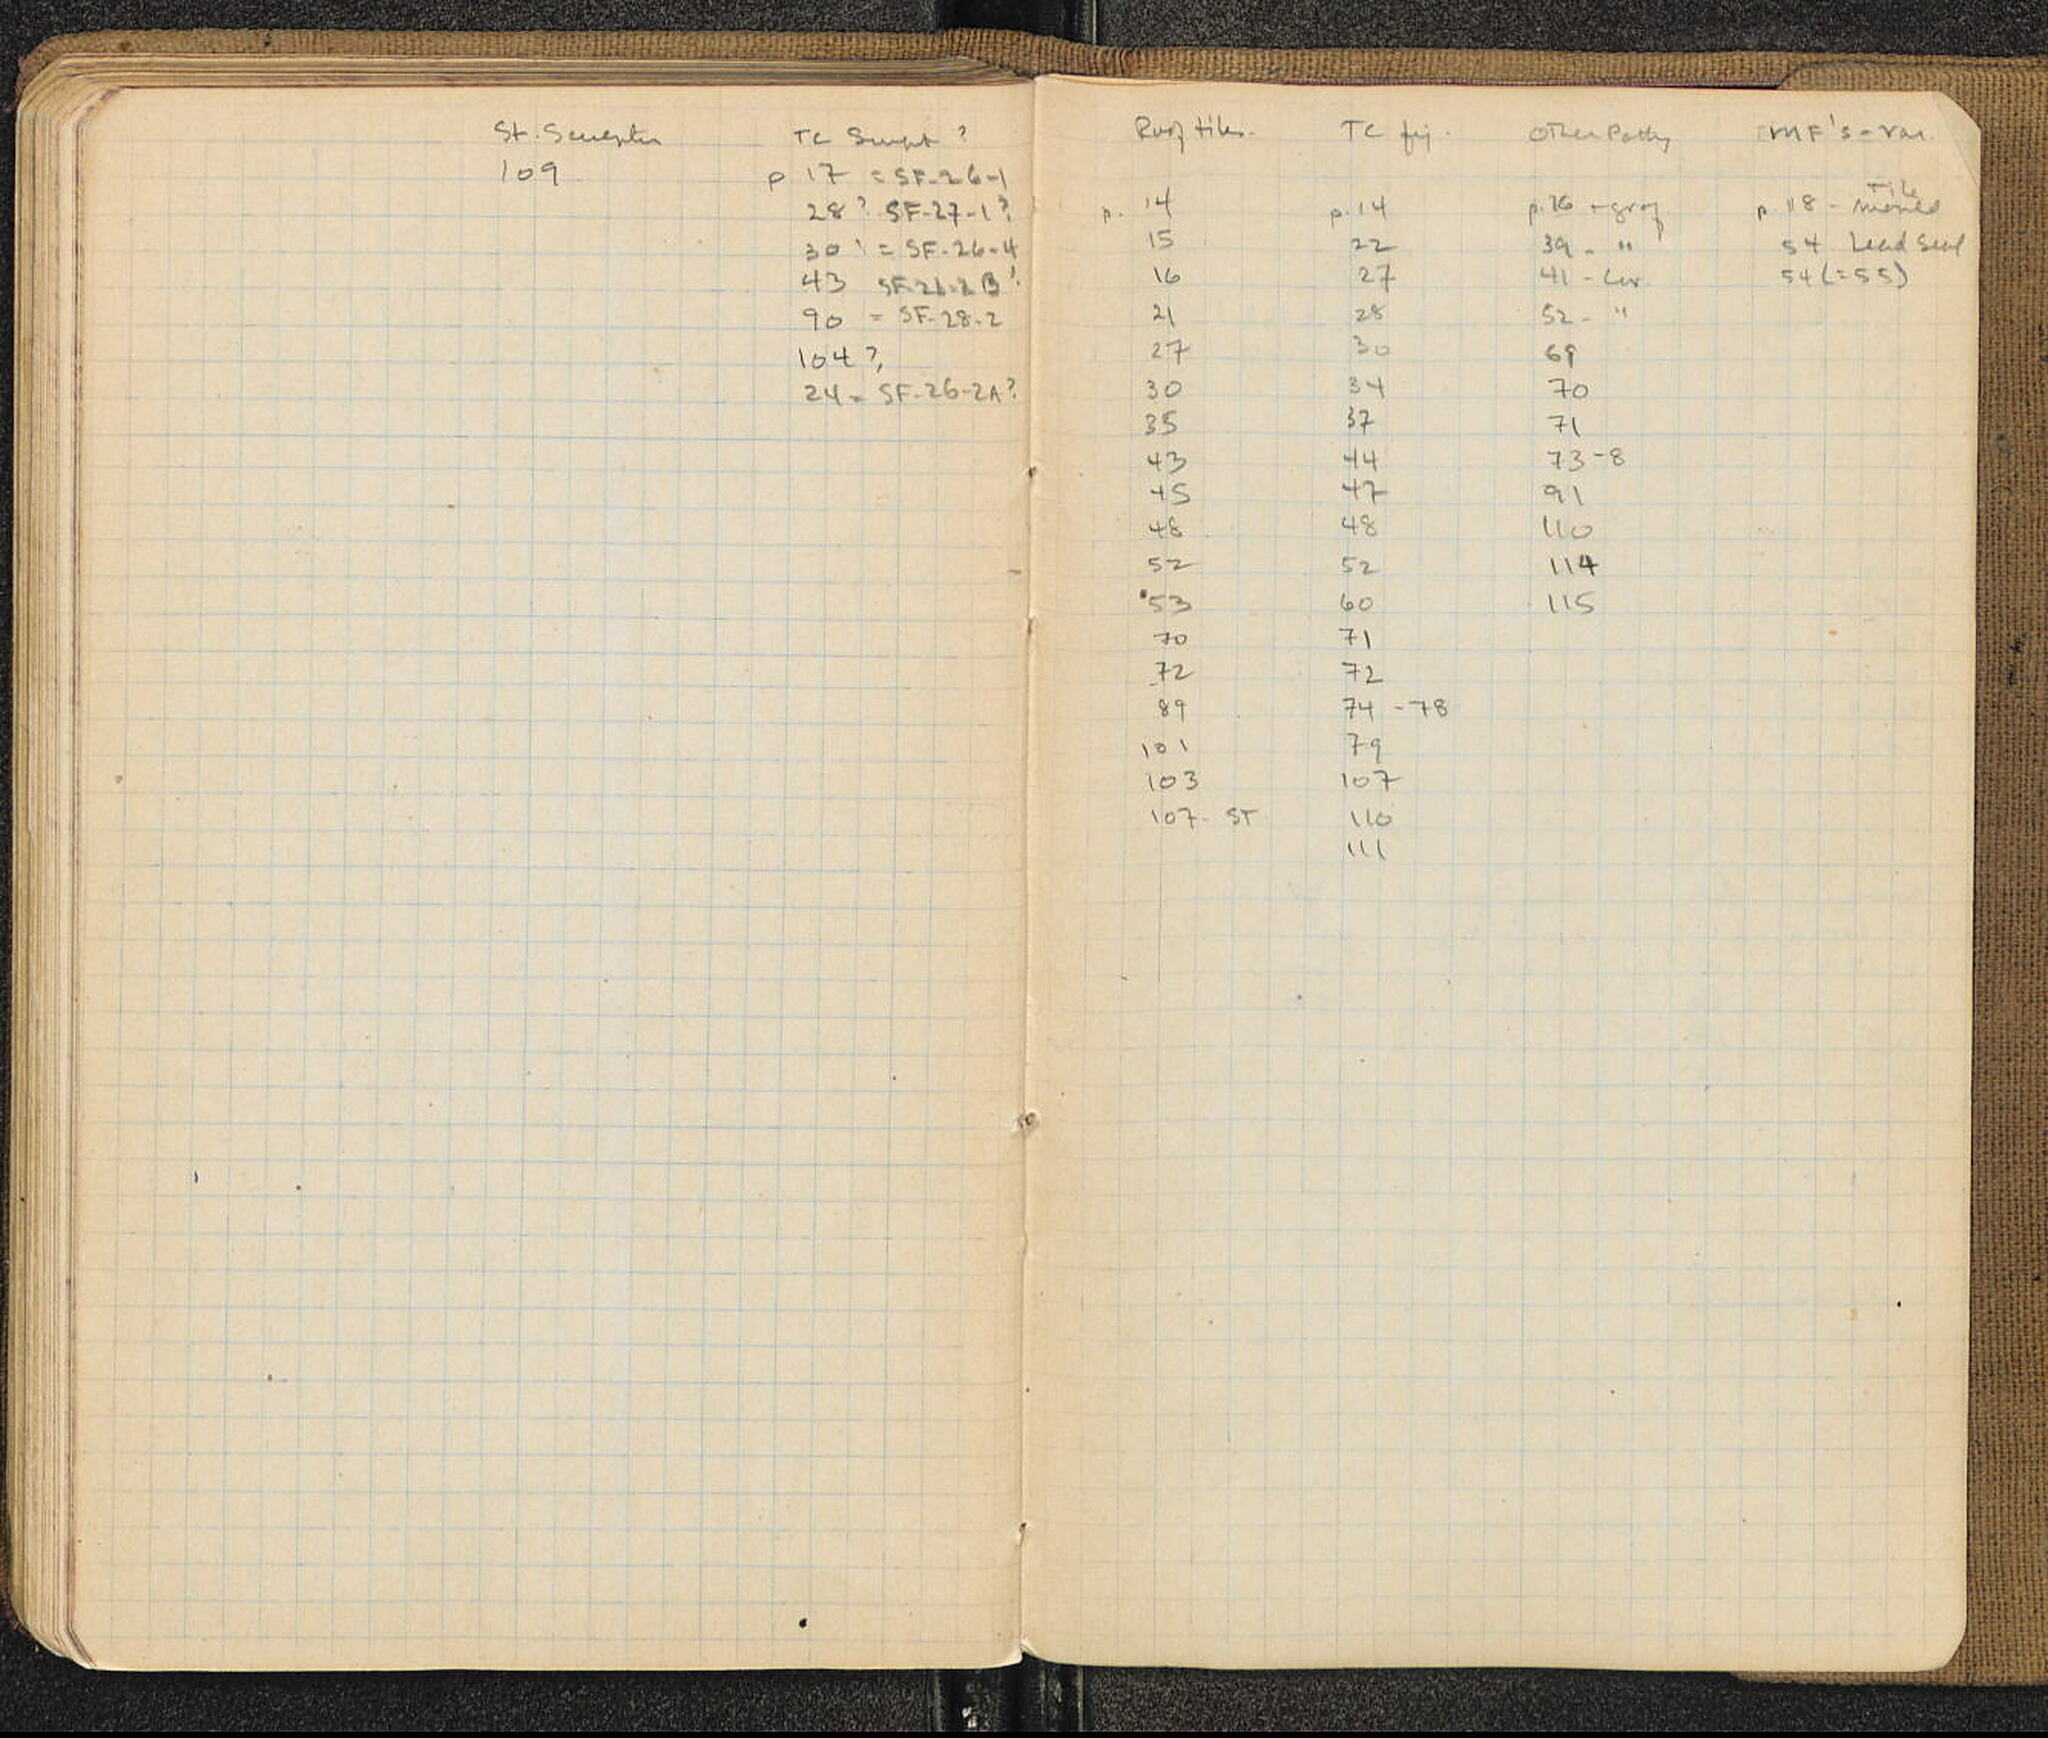 St. Sculpture
109
TC Sculpt ?
p 17 = SF-26-1
28 ? SF-27-1 ?
30 ! = SF-26-4
43 SF-26-2B ?
90 = SF-28-2
104 ?
24 = SF-26-2A ?
Roof tiles. TC fig. Other Pottery MF's - var.
Tile
p. 14 p. 14 p. 26 - graf p. 18 - mould
15 22 39 - " 54 Lead Seal
16 27 41 - 54 (=55)
21 28 52 - "
27 30 69
30 34 70
35 37 71
43 44 73-8
45 47 91
48 48 110
52 52 114
53 60 115
70 71
72 72
89 74 - 78
101 79
103 107
107 - ST 110
111